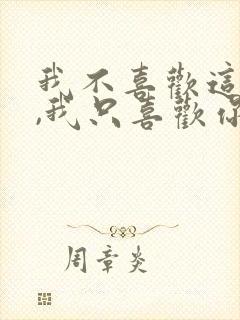 我不喜歡這
,我只喜歡你
周章炎